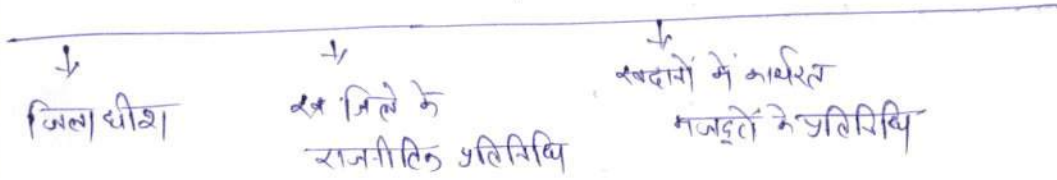 जिलाधीश
जिले के
राजनीतिक प्रतिनिधि
खदानों में कार्यरत
मजदूरों के प्रतिनिधि